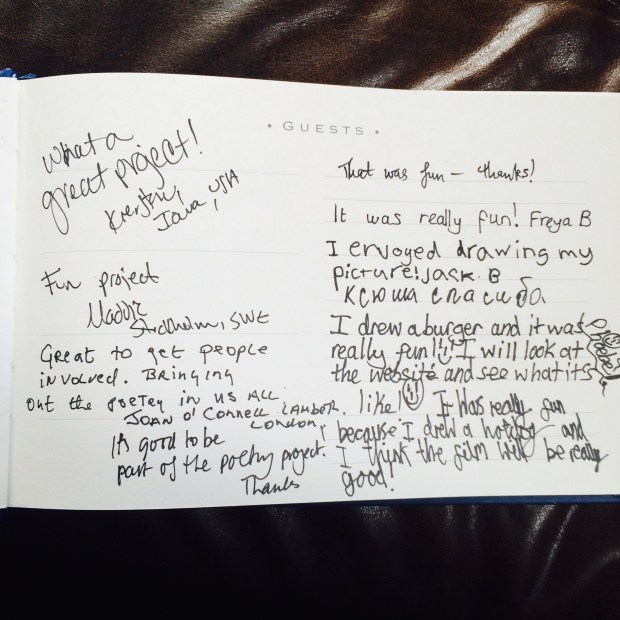 • GUESTS •
What a
great project!
Kiersten,
Java, USA
Fun project
Maddie
Stockholm, SWE
Great to get people
involved. Bringing
out the poetry in us all.
JOAN O'CONNELL
LONDON,
It's good to be
part of the poetry project.
Thanks
That was fun – thanks!
It was really fun! Freya B
I envoyed drawing my
picture! Jack. B
Ксюша спасиба
I drew a burger and it was
really fun!! I will look at
the website and see what it's
like! It was really fun
because I drew a hotdog and
I think the film will be really
good!